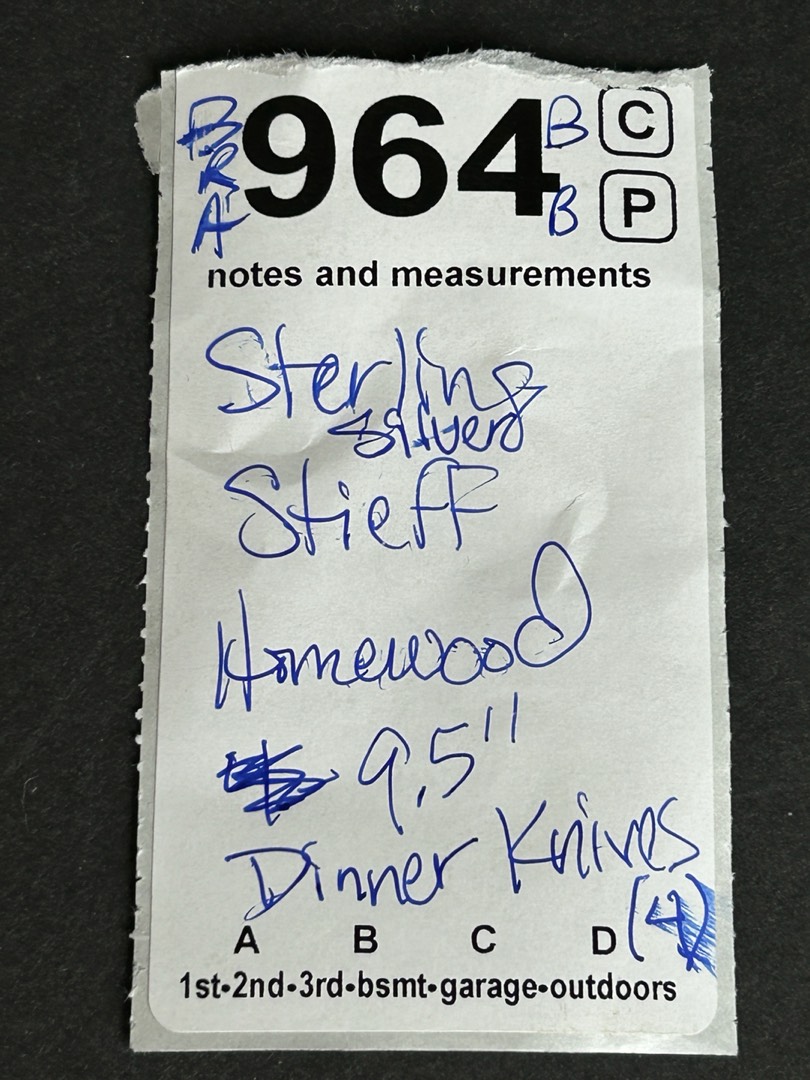 B 964 B C
R
A B P
notes and measurements
Sterling
Silver
Stieff
Homewood
9.5"
Dinner Knives
(4)
A B C D
1st•2nd•3rd•bsmt•garage•outdoors